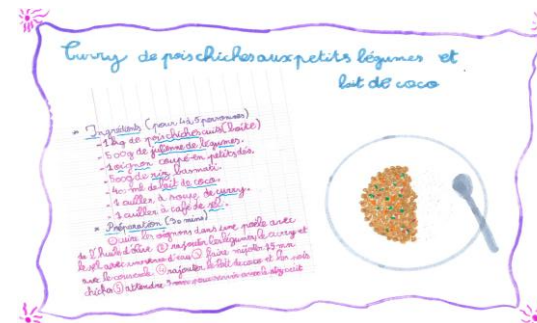 Curry de pois chiches aux petits légumes et
lait de coco
* Ingrédients (pour 4 à 5 personnes)
- 1 kg de pois chiches cuits (boîte)
- 500g de julienne de légumes.
- 1 oignon coupé en petits dés.
- 500g de riz basmati.
- 40 ml de lait de coco.
- 1 cuiller à soupe de curry.
- 1 cuiller à café de sel.
* Préparation (30 mins)
① cuire les oignons dans une poêle avec
de l'huile d'olive ② rajouter les légumes, le curry et
le sel avec un verre d'eau ③ faire mijoter 15 min
avec le couvercle. ④ rajouter le lait de coco et les pois
chiches ⑤ attendre 5 min pour servir avec le riz cuit